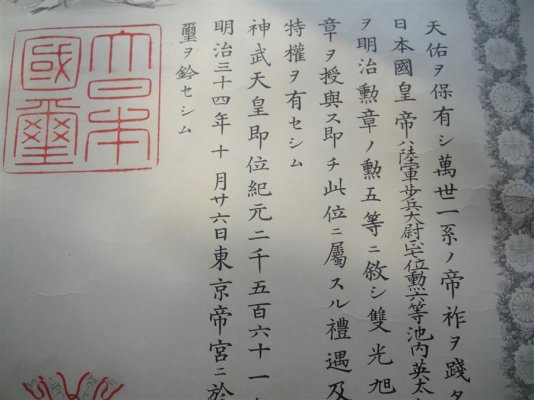 天佑ヲ保有シ萬世一系ノ帝祚ヲ踐タ
日本國皇帝ハ陸軍步兵大尉正七位勳六等池内英太
ヲ明治勳章ノ勳五等ニ敘シ雙光旭
章ヲ授與ス即チ此位ニ屬スル禮遇及
特權ヲ有セシム
神武天皇即位紀元二千五百六十一
明治三十四年十月廿六日東京帝宮ニ於
璽ヲ鈐セシム
大日本
國璽